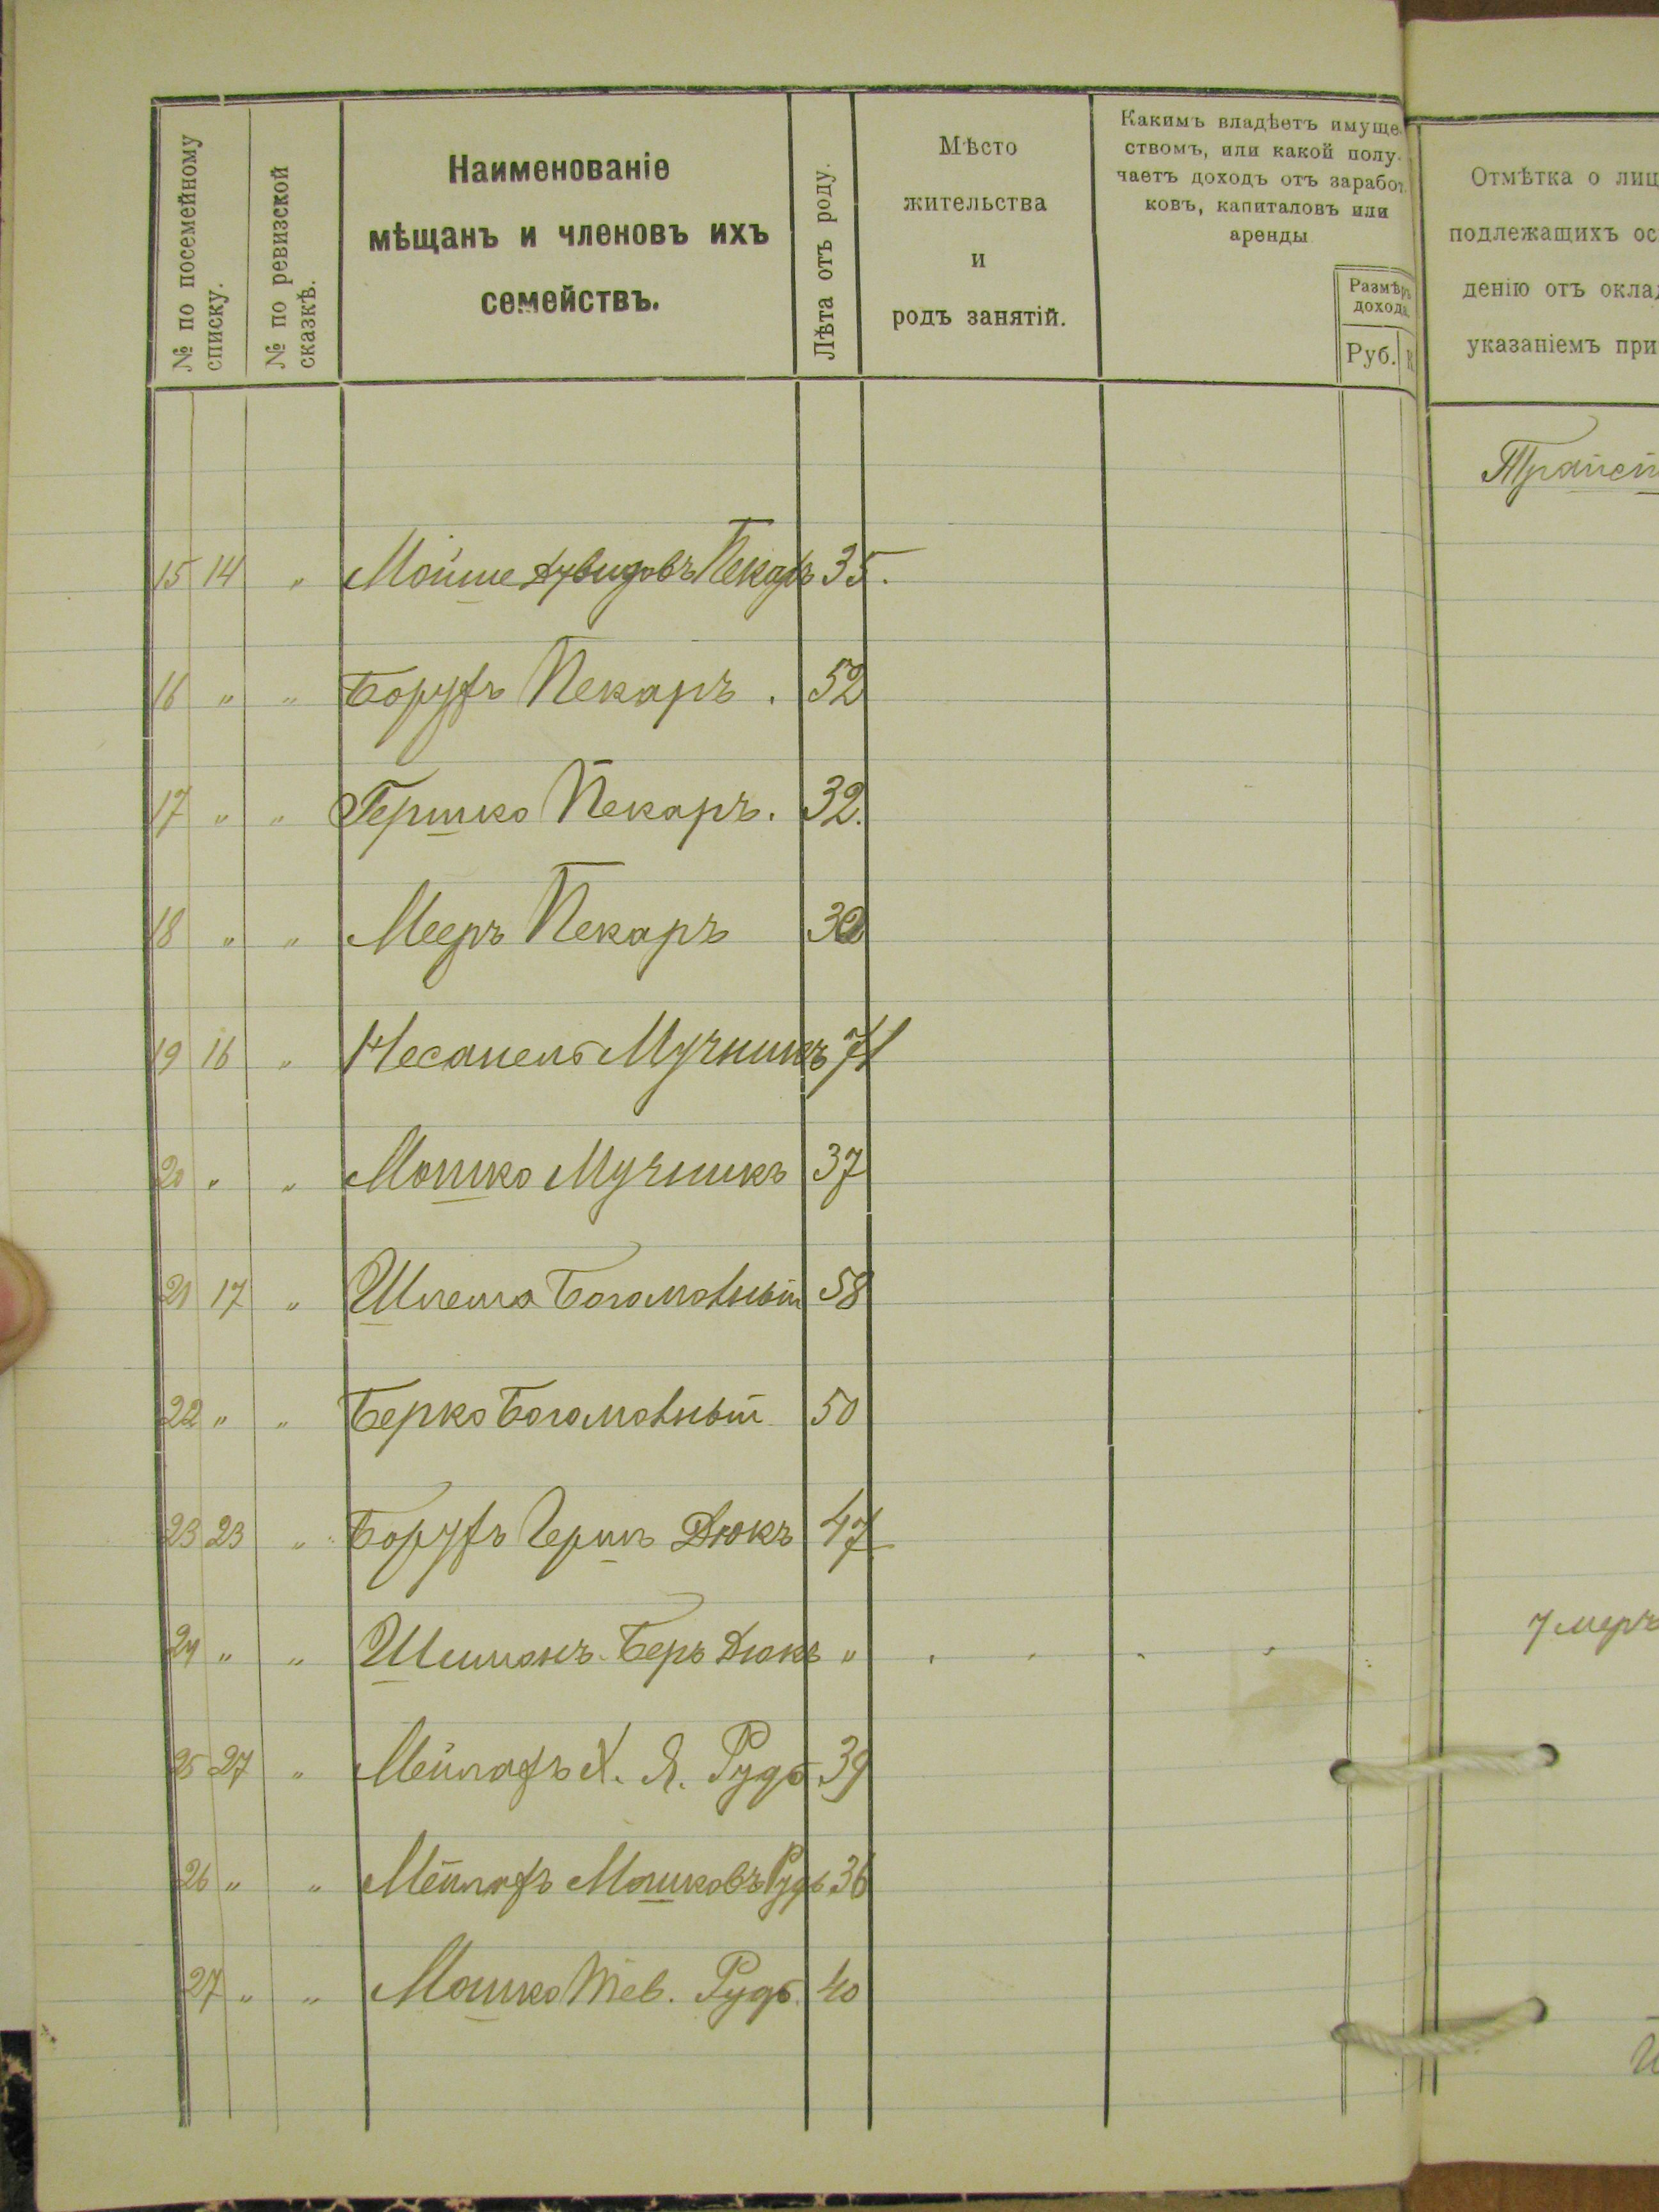 № по посемейному
списку.
№ по ревизской
сказкѣ.
Наименованіе
мѣщанъ и членовъ ихъ
семействъ.
Лѣта отъ роду.
Мѣсто
жительства
и
родъ занятій.
Какимъ владѣетъ имуще-
ствомъ, или какой полу-
чаетъ доходъ отъ заработ-
ковъ, капиталовъ или
аренды
Размѣръ
дохода.
Руб.
К.
Отмѣтка о лиц
подлежащихъ ос
денію отъ оклад
указаніемъ при
15 14 " Мойше Дувидовъ Пекаръ 35.
16 " " Борухъ Пекаръ. 52
17 " " Гершко Пекаръ. 32.
18 " " Мееръ Пекаръ
19 16 " Несанель Мучникъ 71
20 " " Мошко Мучникъ 37
21 17 " Шлема Богомольный 58
22 " " Берко Богомольный 50
23 23 " Борухъ Гершъ Дюкъ 47
24 " " Шимонъ-Беръ Дюкъ "
25 27 " Мейлахъ Х. Я. Рудь 39
26 " " Мейлахъ Мошковъ Рудь 36
27 " " Мошко Тев. Рудь. 40